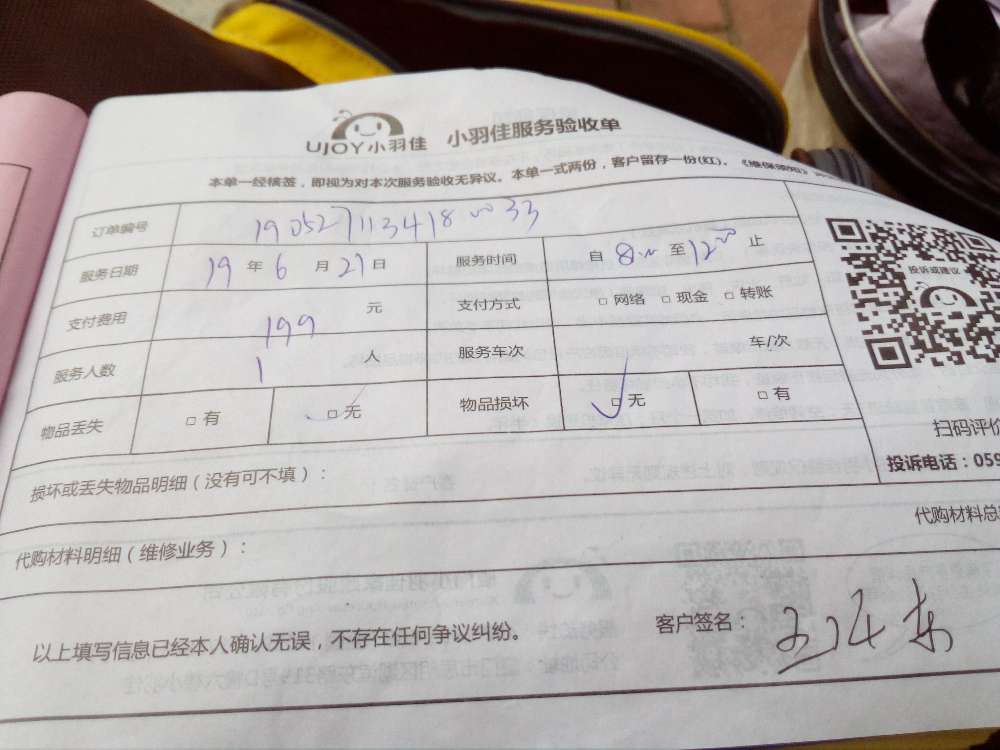 UJOY小羽佳 小羽佳服务验收单
本单一经核签，即视为对本次服务验收无异议。本单一式两份，客户留存一份(红)。《维保须知》
订单编号 190527113418 33
服务日期 19 年 6 月 21 日 服务时间 自 8:00 至 12:00 止
投诉或建议
支付费用 199 元 支付方式 □ 网络 □ 现金 □ 转账
服务人数 1 人 服务车次 车/次
物品丢失 □ 有 □ 无 物品损坏 □ 无 □ 有
扫码评价
投诉电话：059
损坏或丢失物品明细（没有可不填）：
代购材料总
代购材料明细（维修业务）：
以上填写信息已经本人确认无误，不存在任何争议纠纷。
客户签名：